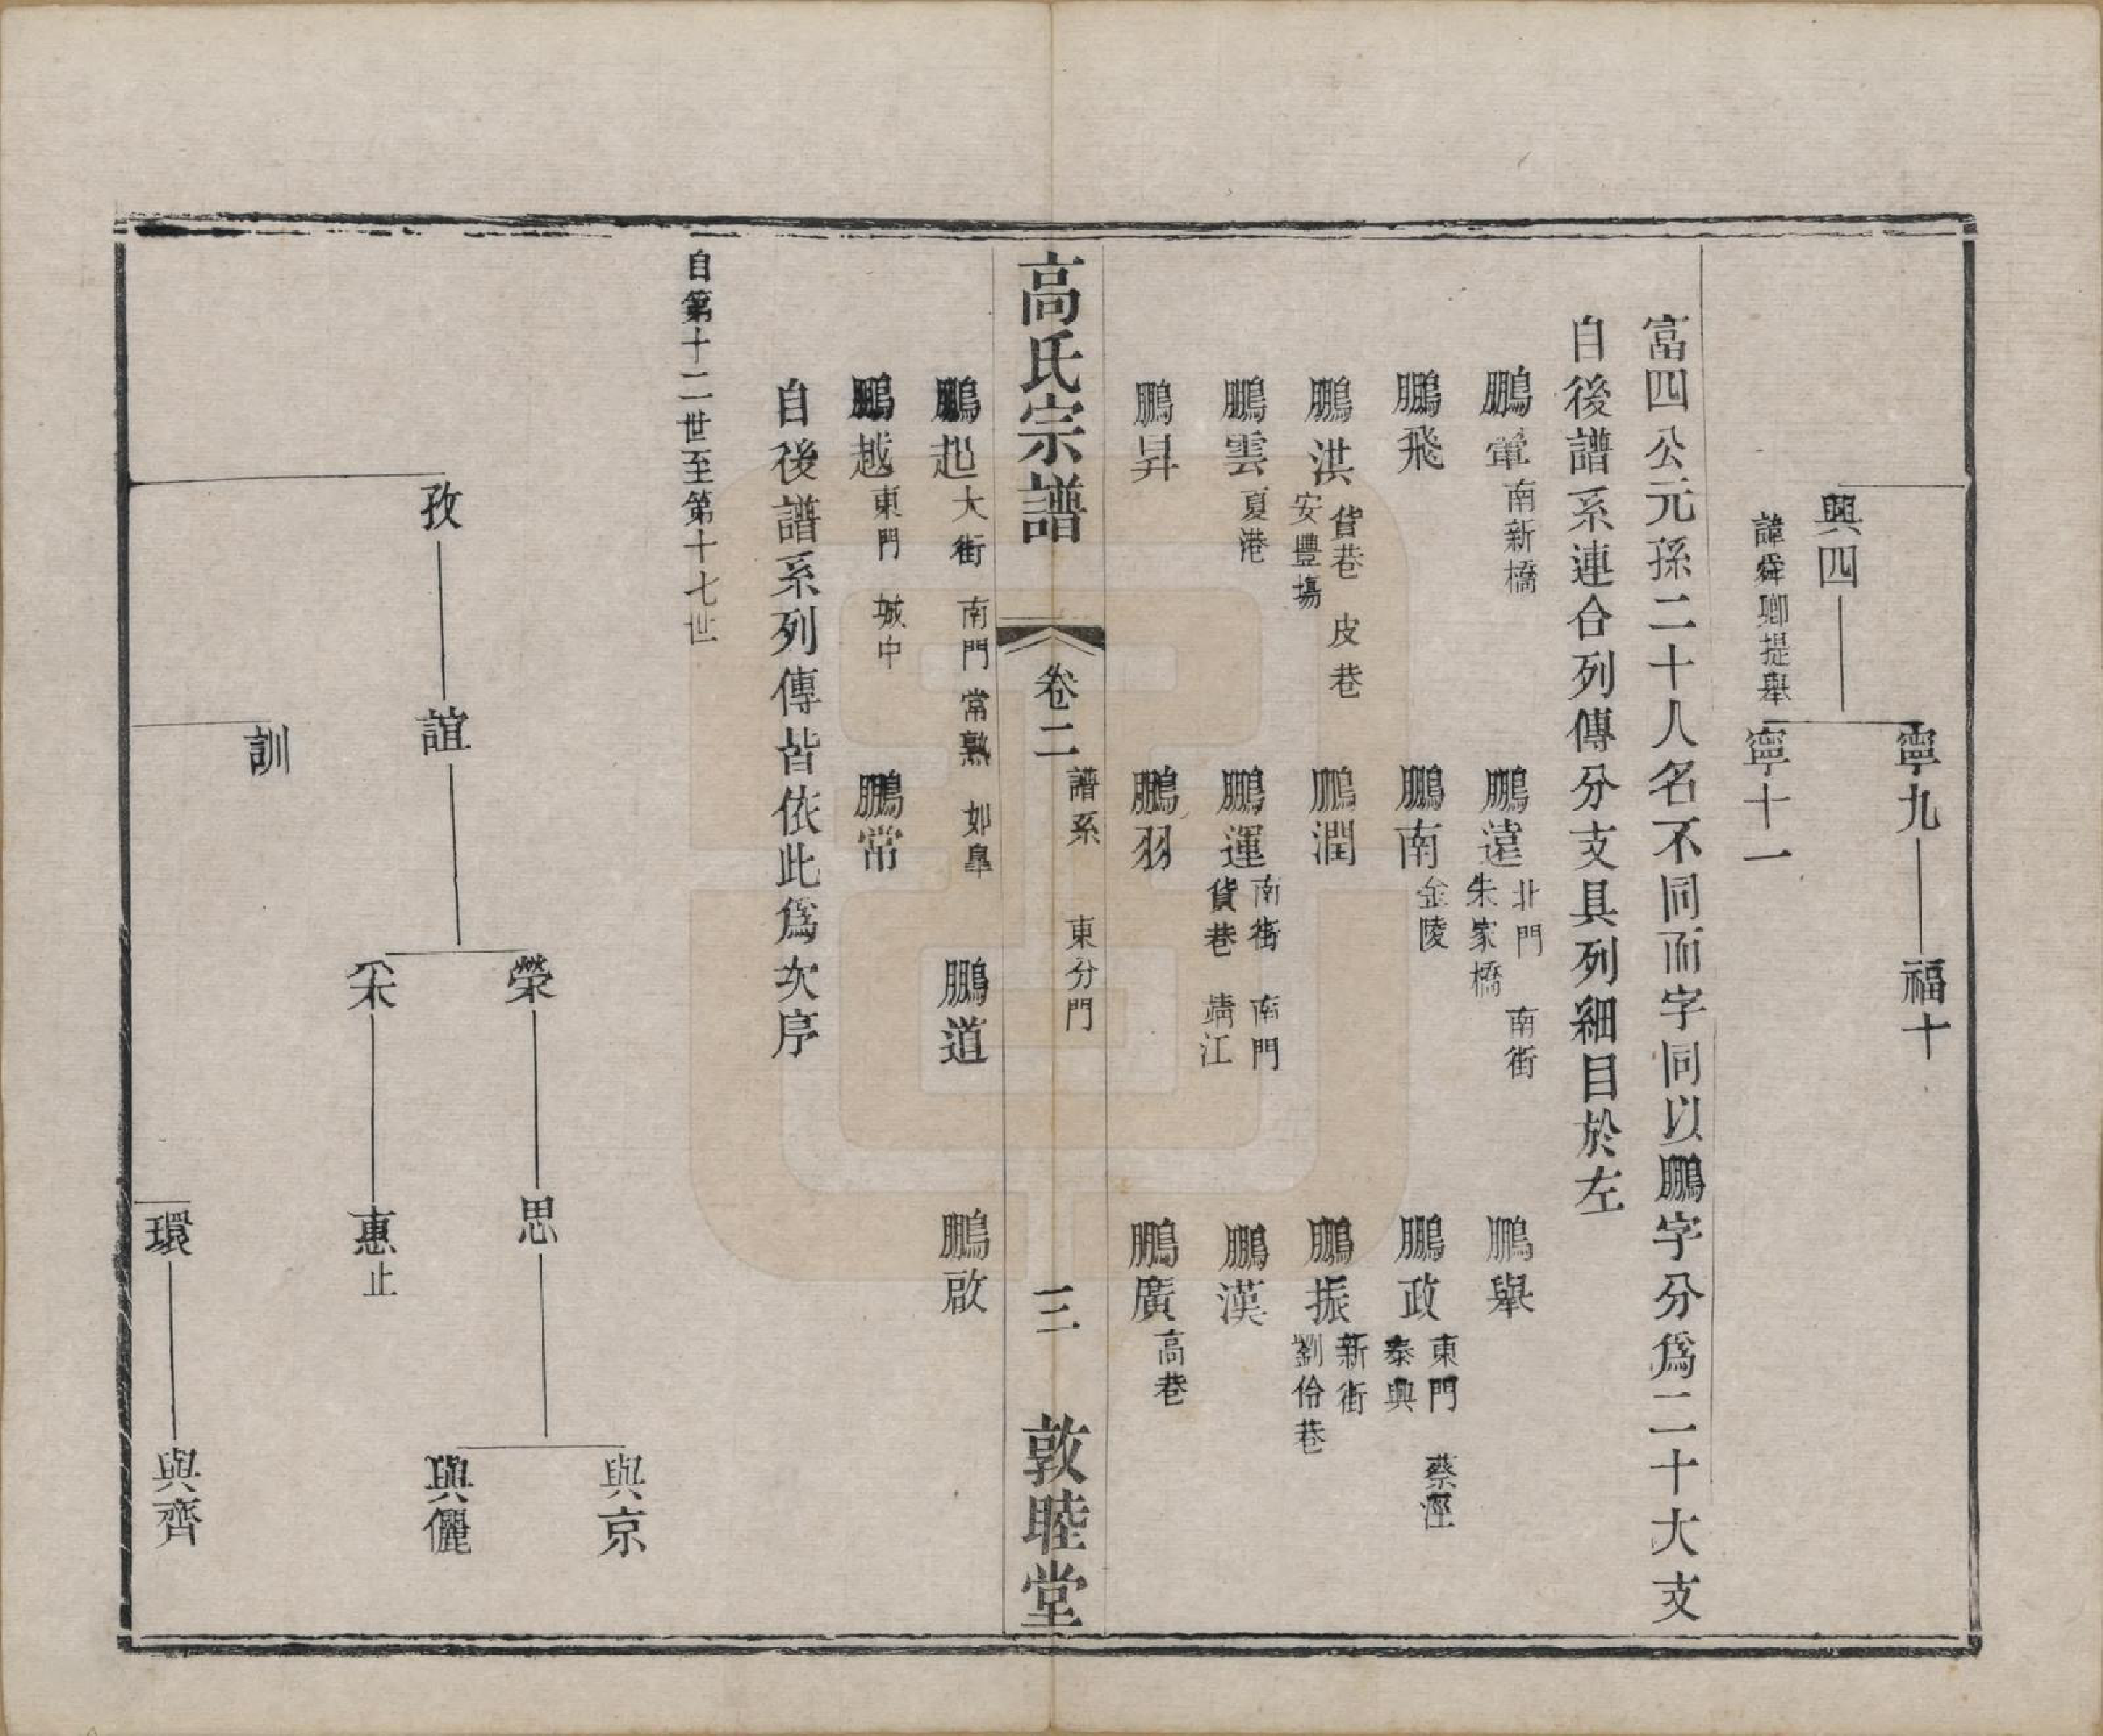 寧九 福十
興四
諱舜卿提舉
寧十一
富四公元孫二十人名不同而字同以鵬字分爲二十大支
自後譜系連合列傳分支具列細目於左
鵬 南新橋
鵬遠 北門 南街 朱家橋
鵬舉
鵬飛
鵬南 金陵
鵬政 東門 蔡涇 泰興
鵬洪 貨巷 皮巷 安豐塲
鵬潤
鵬振 新街 劉份巷
鵬雲 夏港
鵬運 南街 南門 貨巷 靖江
鵬漢
鵬昇
鵬羽
鵬廣 高巷
高氏宗譜 卷二 譜系 東分門 三 敦睦堂
鵬起 大街 南門 常熟 如臯
鵬道
鵬啟
鵬越 東門 城中
鵬常
自後譜系列傳皆依此爲次序
自第十二世至第十七世
與京
榮 思
孜 誼
與儷
釆 惠止
訓
環 與齊